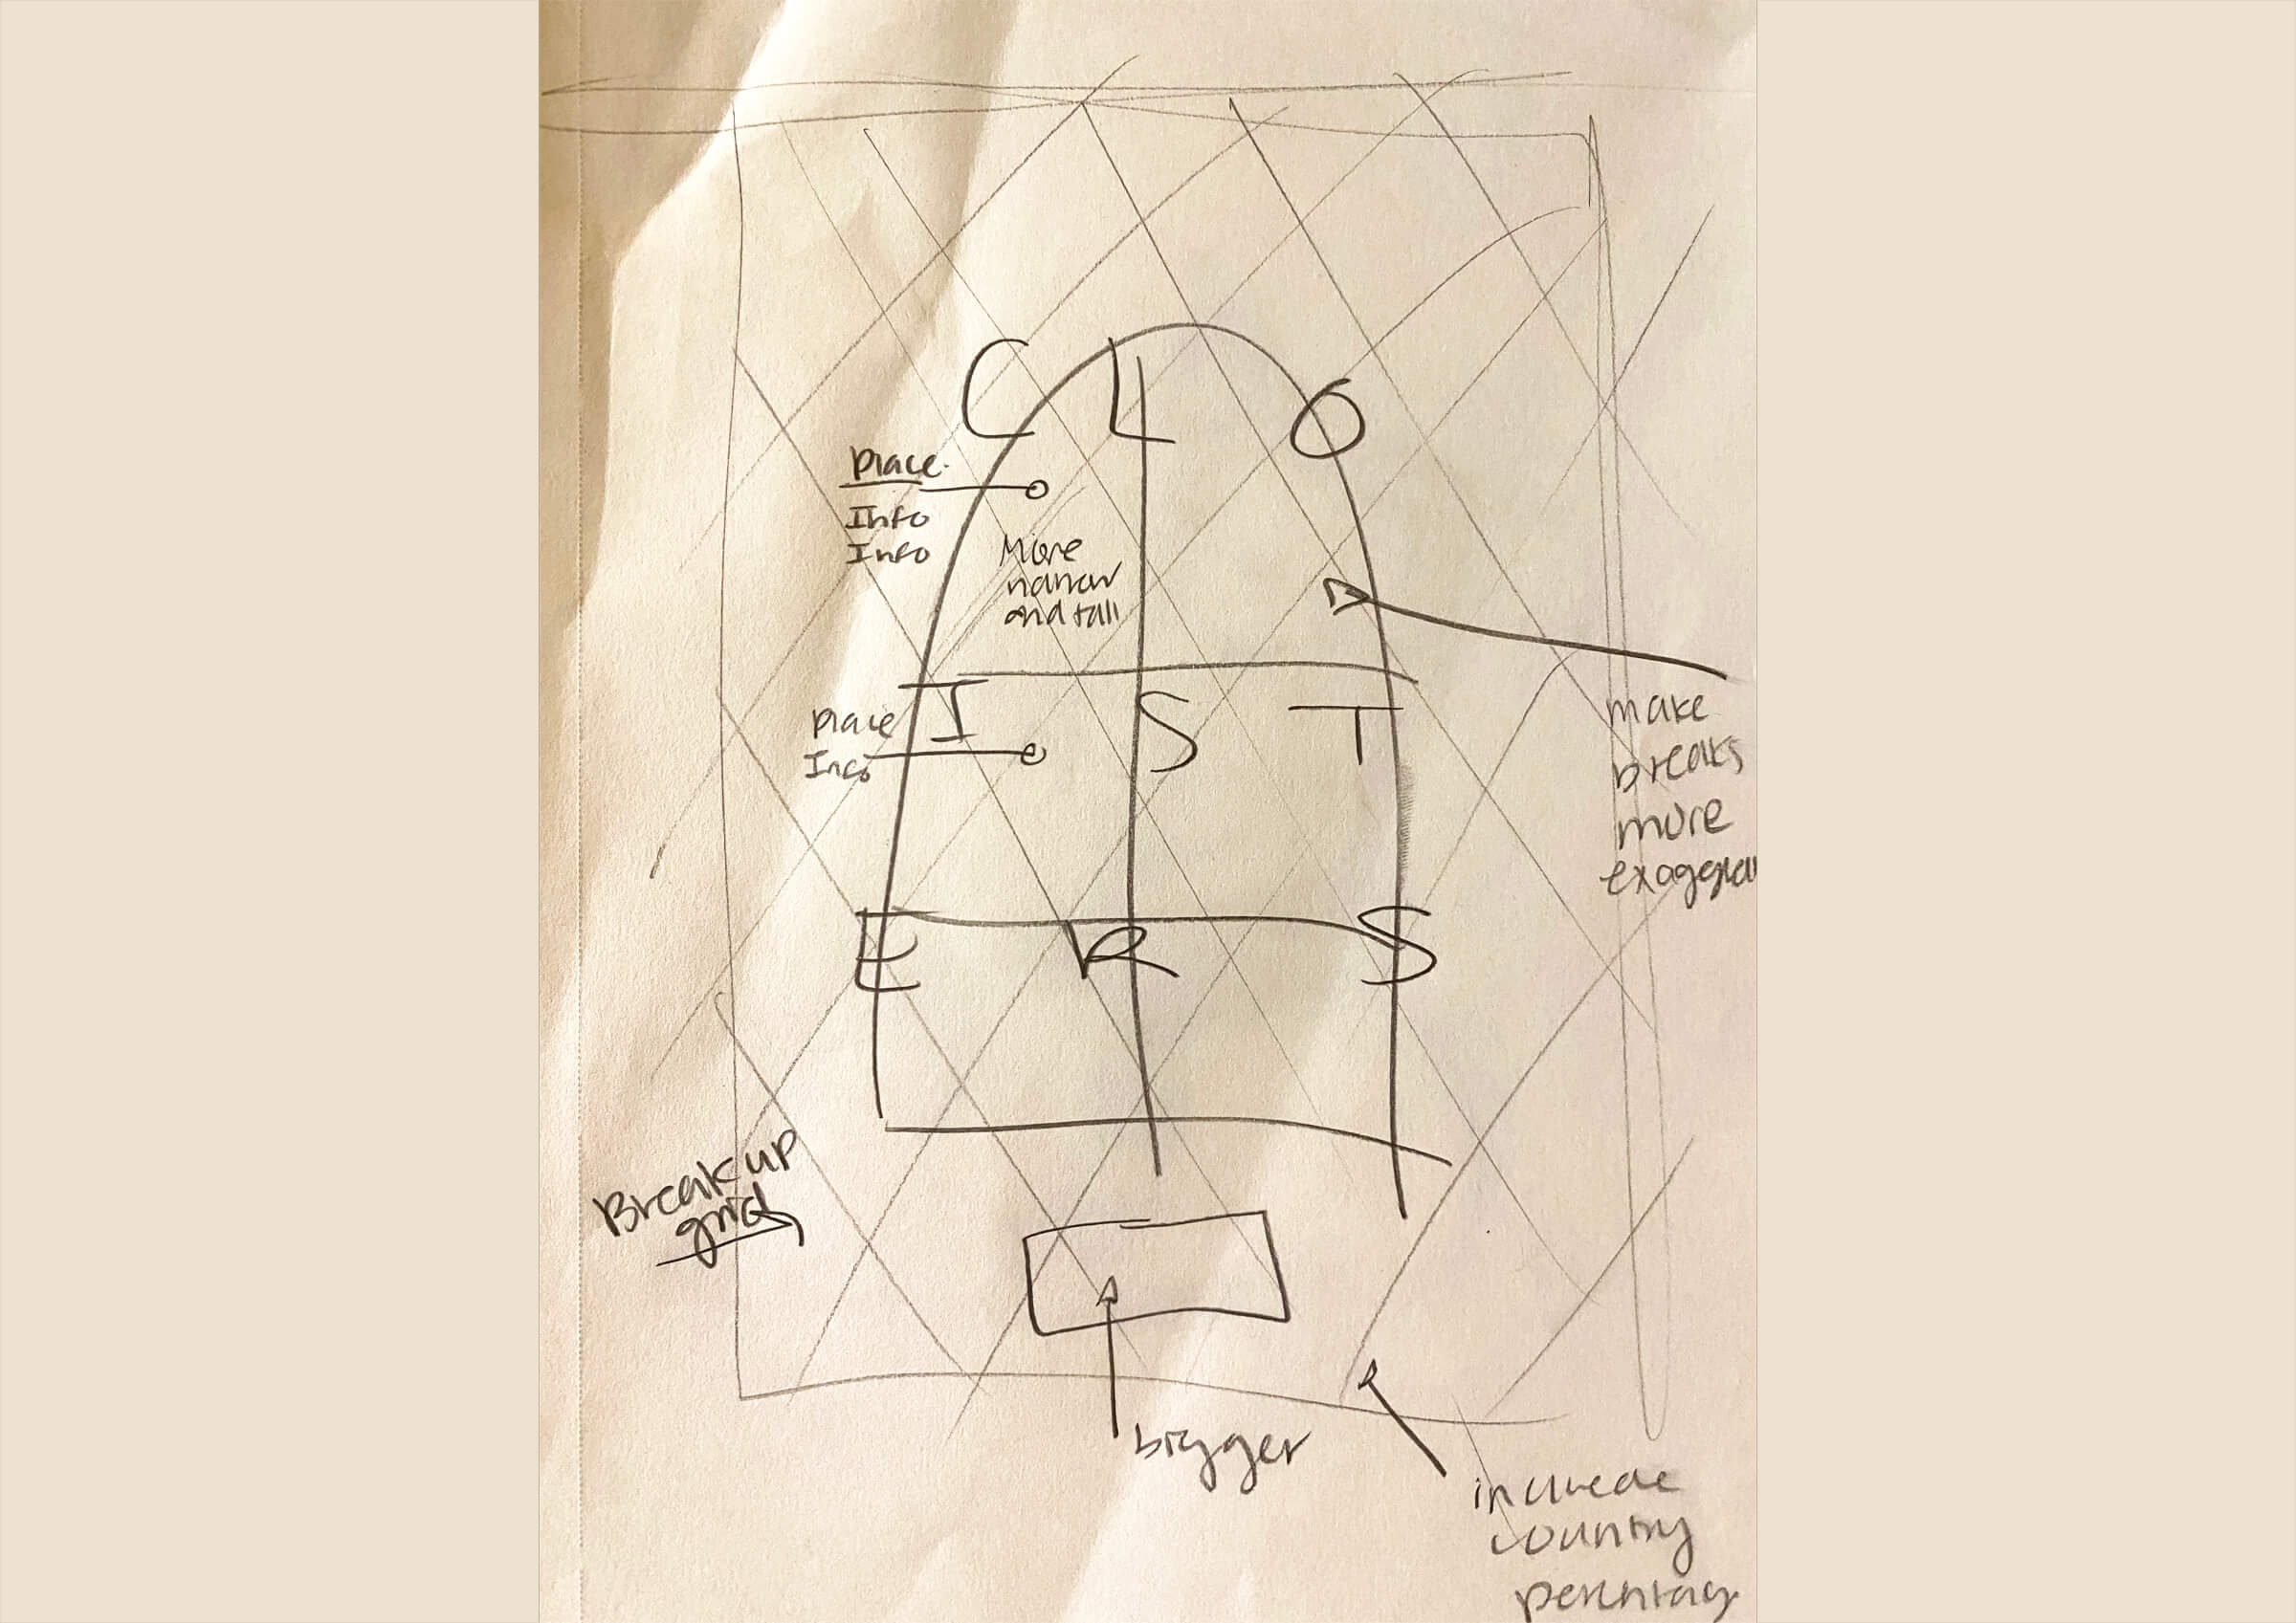 C L O
Place.
Info
Info
More
narrow
and tall
I S T
Place
Info
make
breaks
more
E R S
Break up
grid
bigger
include
country